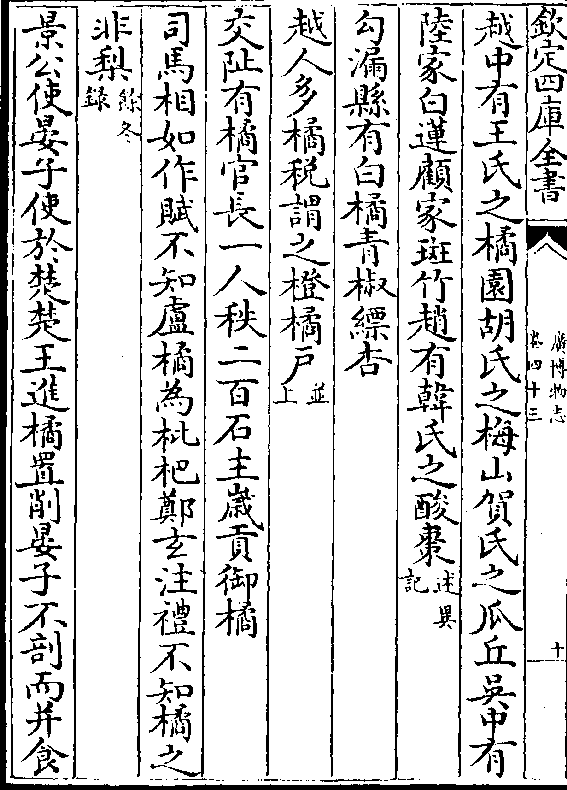 欽定四庫全書
廣博物志
卷四十三
十
越中有王氏之橘園胡氏之梅山賀氏之瓜丘吳中有
陸家白蓮顧家斑竹趙有韓氏之酸棗述異記
勾漏縣有白橘青椒縹杏
越人多橘税謂之橙橘戸並上
交阯有橘官長一人秩二百石主嵗貢御橘
司馬相如作賦不知盧橘為枇杷鄭玄注禮不知橘之
非梨餘冬錄
景公使晏子使於楚楚王進橘置削晏子不剖而并食